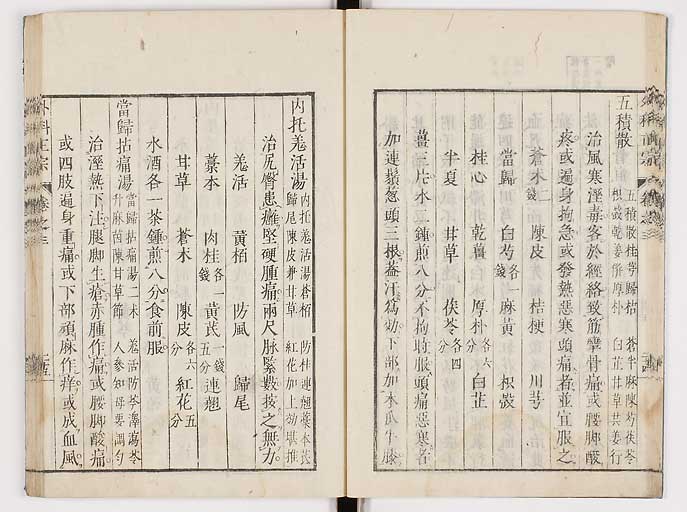 五積散
五積散桂芎歸桔 蒼半麻陳芍茯苓
枳殼乾姜併厚朴 白芷甘草共姜行
治風寒溼毒客於經絡致筋攣骨痛或腰脚酸
疼或遍身拘急或發熱惡寒頭痛者並宜服之
蒼朮二錢 陳皮 桔梗 川芎
當歸 白芍各一錢 麻黃 枳殼
桂心 乾薑 厚朴各六分 白芷
半夏 甘草 茯苓各四分
薑三片水二鍾煎八分不拘時服頭痛惡寒者
加連鬚葱頭三根葢汗爲効下部加木瓜牛膝
內托羗活湯
內托羗活湯蒼栢 防桂連翹藁本芪
歸尾陳皮兼甘草 紅花加上効堪推
治尻臀患癰堅硬腫痛兩尺脉緊數按之無力
羗活 黃栢 防風 歸尾
藁本 肉桂各一錢 黃芪一錢五分 連翹
甘草 蒼朮 陳皮各六分 紅花五分
水酒各一茶鍾煎八分食前服
當歸拈痛湯
當歸拈痛湯二朮 羗活防苓澤瀉苓
升麻茵陳甘草節 人參知母要調勻
治溼熱下注腿脚生瘡赤腫作痛或腰脚酸痛
或四肢遍身重痛或下部頑麻作痒或成血風
外科正宗 卷之三